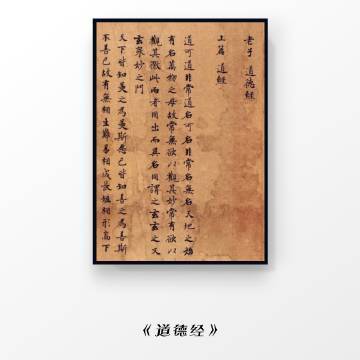 老子 道德经
上篇 道经
道可道非常道名可名非常名无名天地之始
有名万物之母故常无欲以观其妙常有欲以
观其徼此两者同出而异名同谓之玄玄之又
玄众妙之门
天下皆知美之为美斯恶已皆知善之为善斯
不善已故有无相生难易相成长短相形高下
《道德经》